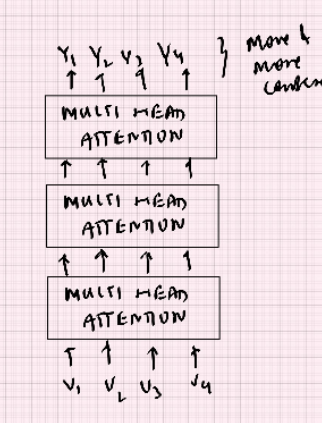 Y1 Y2 Y3 Y4 } More &
more
MULTI HEAD
ATTENTION
MULTI HEAD
ATTENTION
MULTI HEAD
ATTENTION
V1 V2 V3 V4